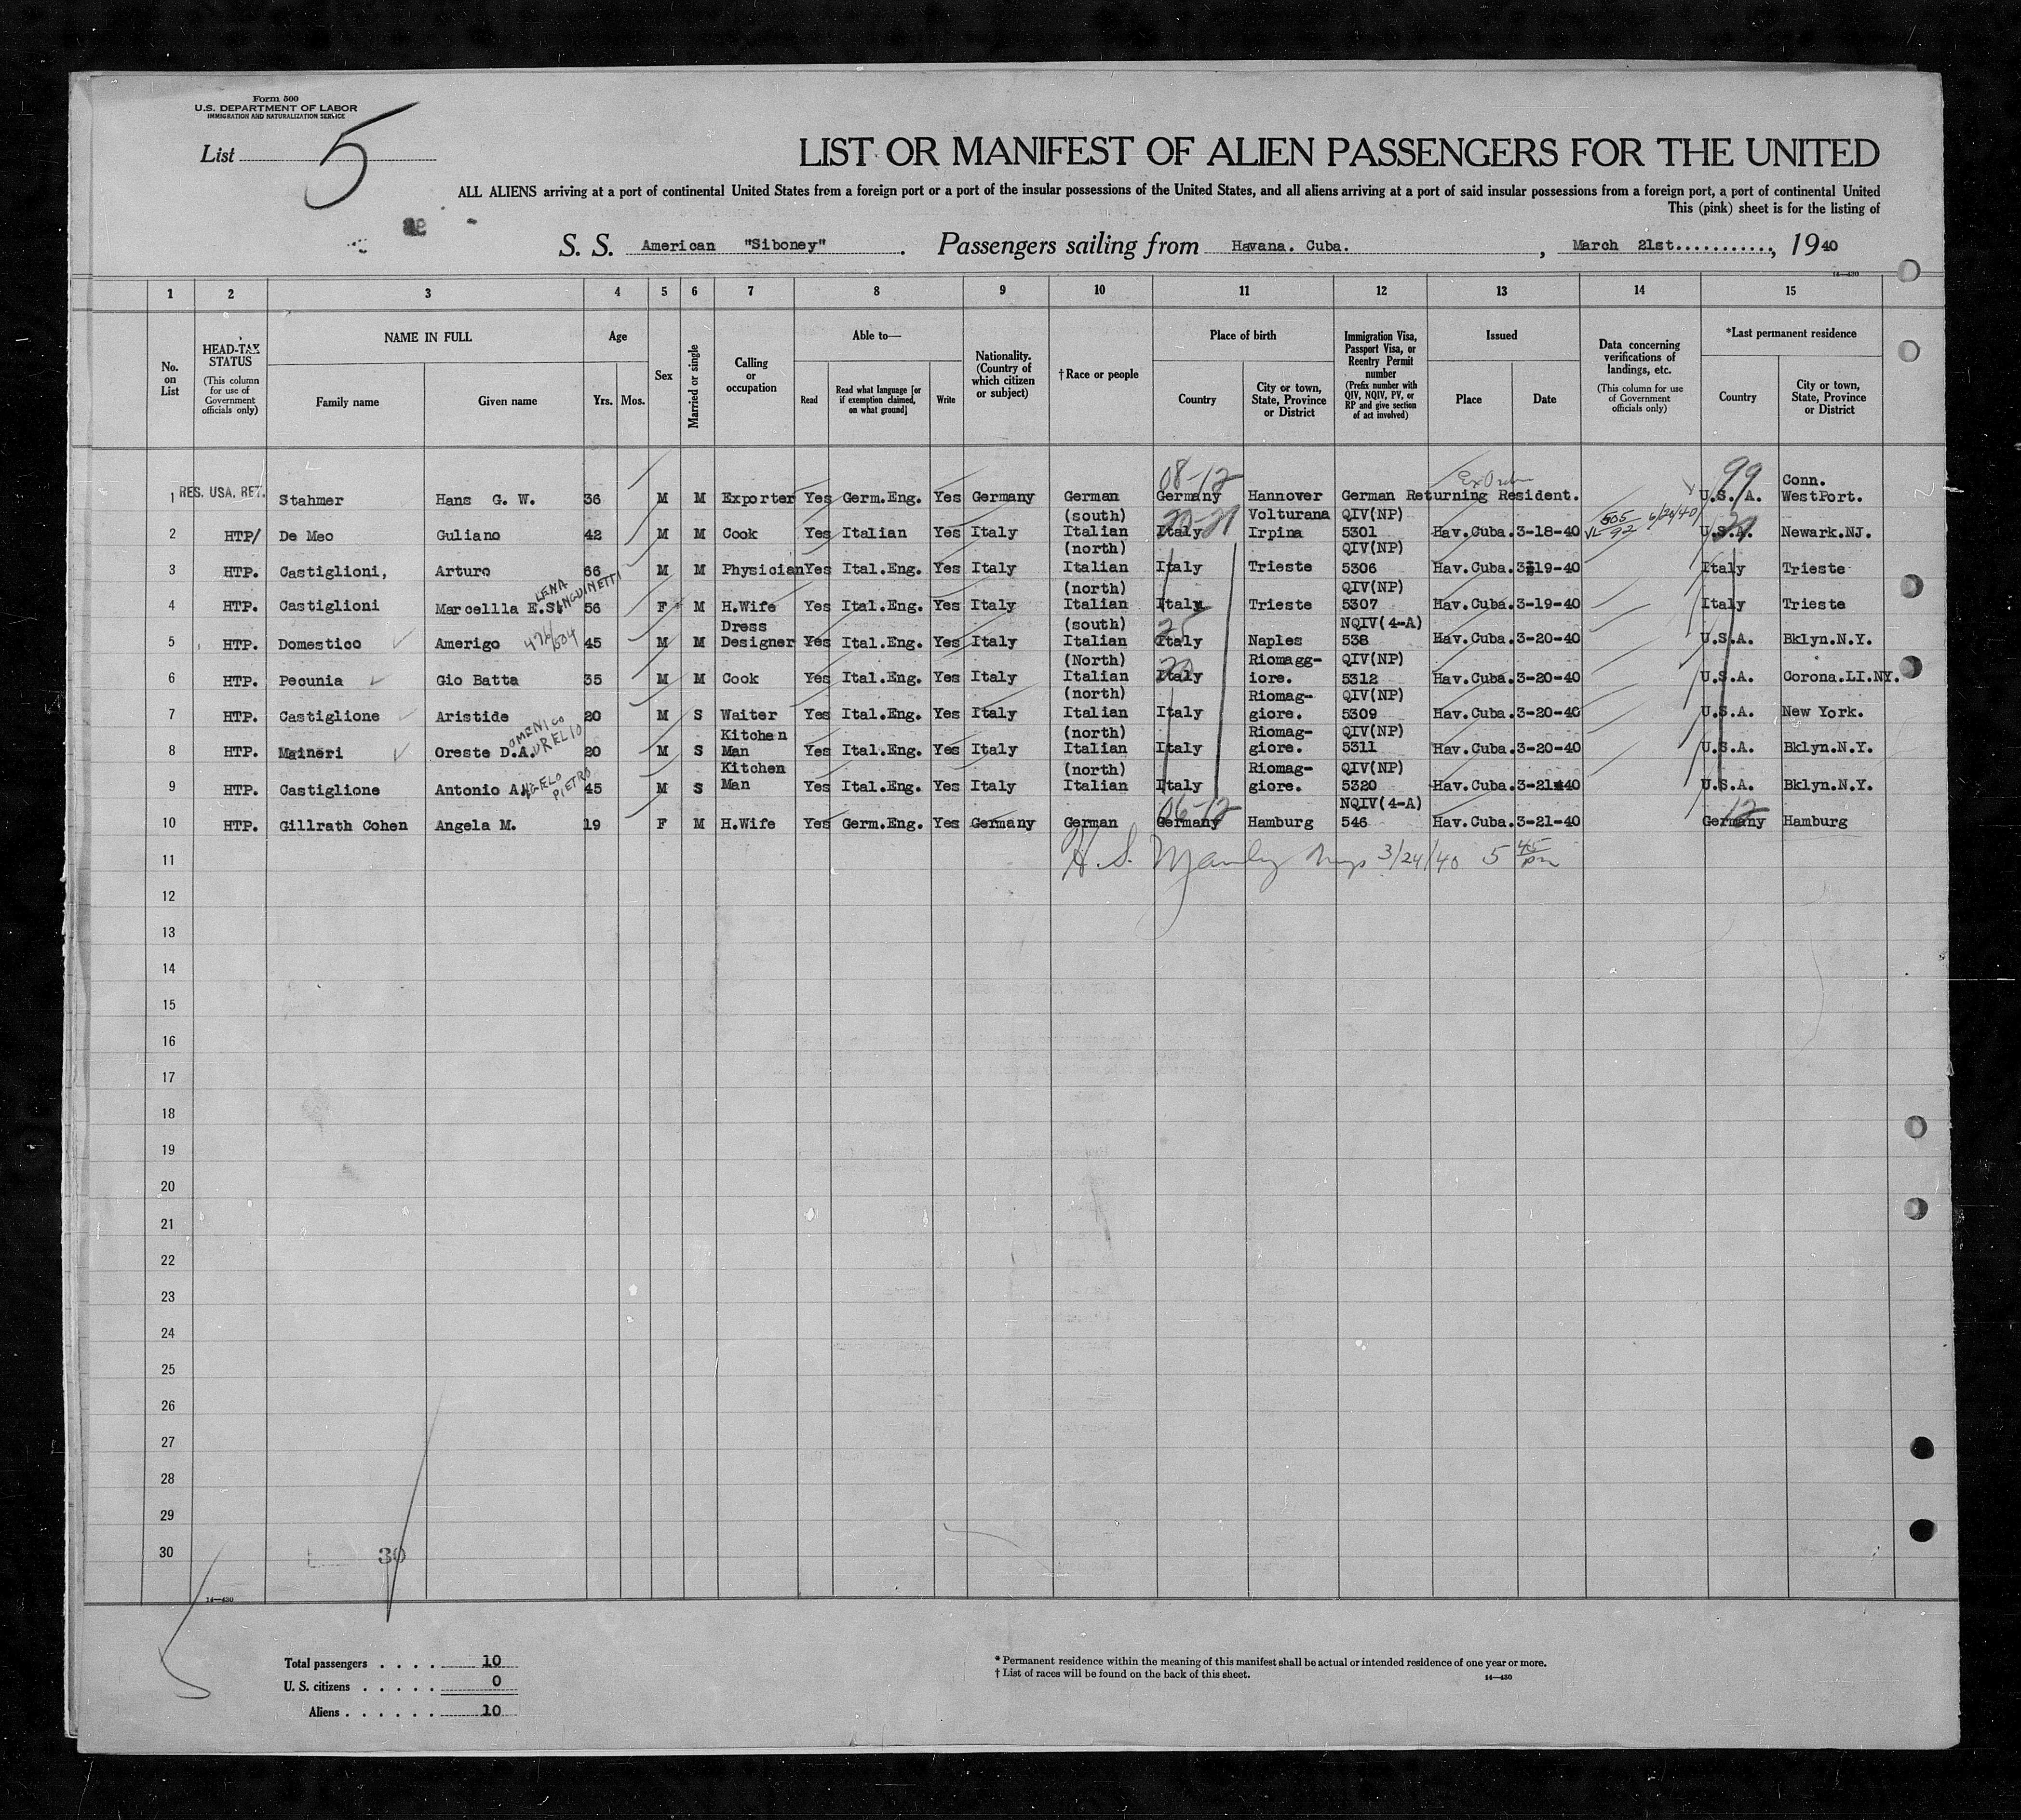 Form 500
U.S. DEPARTMENT OF LABOR
IMMIGRATION AND NATURALIZATION SERVICE
List 5
LIST OR MANIFEST OF ALIEN PASSENGERS FOR THE UNITED
ALL ALIENS arriving at a port of continental United States from a foreign port or a port of the insular possessions of the United States, and all aliens arriving at a port of said insular possessions from a foreign port, a port of continental United
This (pink) sheet is for the listing of
S. S. American "Siboney". Passengers sailing from Havana. Cuba., March 21st..........., 1940
14—430
1 2 3 4 5 6 7 8 9 10 11 12 13 14 15
No. on List
HEAD-TAX STATUS (This column for use of Government officials only)
NAME IN FULL Family name Given name
Age Yrs. Mos.
Sex
Married or single
Calling or occupation
Able to— Read Read what language [or if exemption claimed, on what ground] Write
Nationality. (Country of which citizen or subject)
† Race or people
Place of birth Country City or town, State, Province or District
Immigration Visa, Passport Visa, or Reentry Permit number (Prefix number with QIV, NQIV, PV, or RP and give section of act involved)
Issued Place Date
Data concerning verifications of landings, etc. (This column for use of Government officials only)
*Last permanent residence Country City or town, State, Province or District
08-12 Ex Order 99 Conn.
1 RES. USA. RET. Stahmer Hans G. W. 36 M M Exporter Yes Germ.Eng. Yes Germany German Germany Hannover German Returning Resident. U.S. A. WestPort.
(south) Volturana QIV(NP) 505 6/20/40
2 HTP/ De Meo Guliano 42 M M Cook Yes Italian Yes Italy Italian Italy Irpina 5301 Hav.Cuba. 3-18-40 VL 92 U.S.A. Newark.NJ.
(north) QIV(NP)
3 HTP. Castiglioni, Arturo 66 M M Physician Yes Ital.Eng. Yes Italy Italian Italy Trieste 5306 Hav.Cuba. 3-19-40 Italy Trieste
LENA SANGUINETTI (north) QIV(NP)
4 HTP. Castiglioni Marcellla E.S. 56 F M H.Wife Yes Ital.Eng. Yes Italy Italian Italy Trieste 5307 Hav.Cuba. 3-19-40 Italy Trieste
476/504 Dress (south) 25 NQIV(4-A)
5 HTP. Domestico Amerigo 45 M M Designer Yes Ital.Eng. Yes Italy Italian Italy Naples 538 Hav.Cuba. 3-20-40 U.S.A. Bklyn.N.Y.
(North) 20 Riomagg- QIV(NP)
6 HTP. Pecunia Gio Batta 35 M M Cook Yes Ital.Eng. Yes Italy Italian Italy iore. 5312 Hav.Cuba. 3-20-40 U.S.A. Corona.LI.NY.
(north) Riomag- QIV(NP)
7 HTP. Castiglione Aristide 20 M S Waiter Yes Ital.Eng. Yes Italy Italian Italy giore. 5309 Hav.Cuba. 3-20-40 U.S.A. New York.
OMENICO URELIO Kitchen (north) Riomag- QIV(NP)
8 HTP. Maineri Oreste D.A. 20 M S Man Yes Ital.Eng. Yes Italy Italian Italy giore. 5311 Hav.Cuba. 3-20-40 U.S.A. Bklyn.N.Y.
NGELO PIETRO Kitchen (north) Riomag- QIV(NP)
9 HTP. Castiglione Antonio A. 45 M S Man Yes Ital.Eng. Yes Italy Italian Italy giore. 5320 Hav.Cuba. 3-21-40 U.S.A. Bklyn.N.Y.
06-12 NQIV(4-A) 12
10 HTP. Gillrath Cohen Angela M. 19 F M H.Wife Yes Germ.Eng. Yes Germany German Germany Hamburg 546 Hav.Cuba. 3-21-40 Germany Hamburg
11 H. S. 3/24/40 5 45 pm
12
13
14
15
16
17
18
19
20
21
22
23
24
25
26
27
28
29
30 30
14—430
Total passengers . . . . 10
U. S. citizens . . . . . 0
Aliens . . . . . . 10
* Permanent residence within the meaning of this manifest shall be actual or intended residence of one year or more.
† List of races will be found on the back of this sheet. 14—430